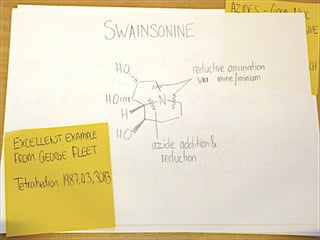 SWAINSONINE
AZIDES - GOOD
HO
reductive amination
via imine/iminium
HO
N
H
HO
azide addition &
reduction
EXCELLENT EXAMPLE
FROM GEORGE FLEET
Tetrahedron 1987, 43, 3083